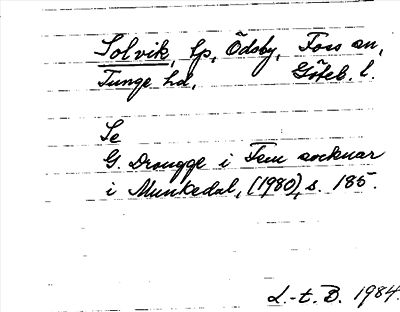 Solvik, lp, Ödsby, Foss sn,
Tunge hd, Göteb. l.
Se
G. Drougge i Fem socknar
i Munkedal, (1980), s. 185.
L.-t. B. 1984.